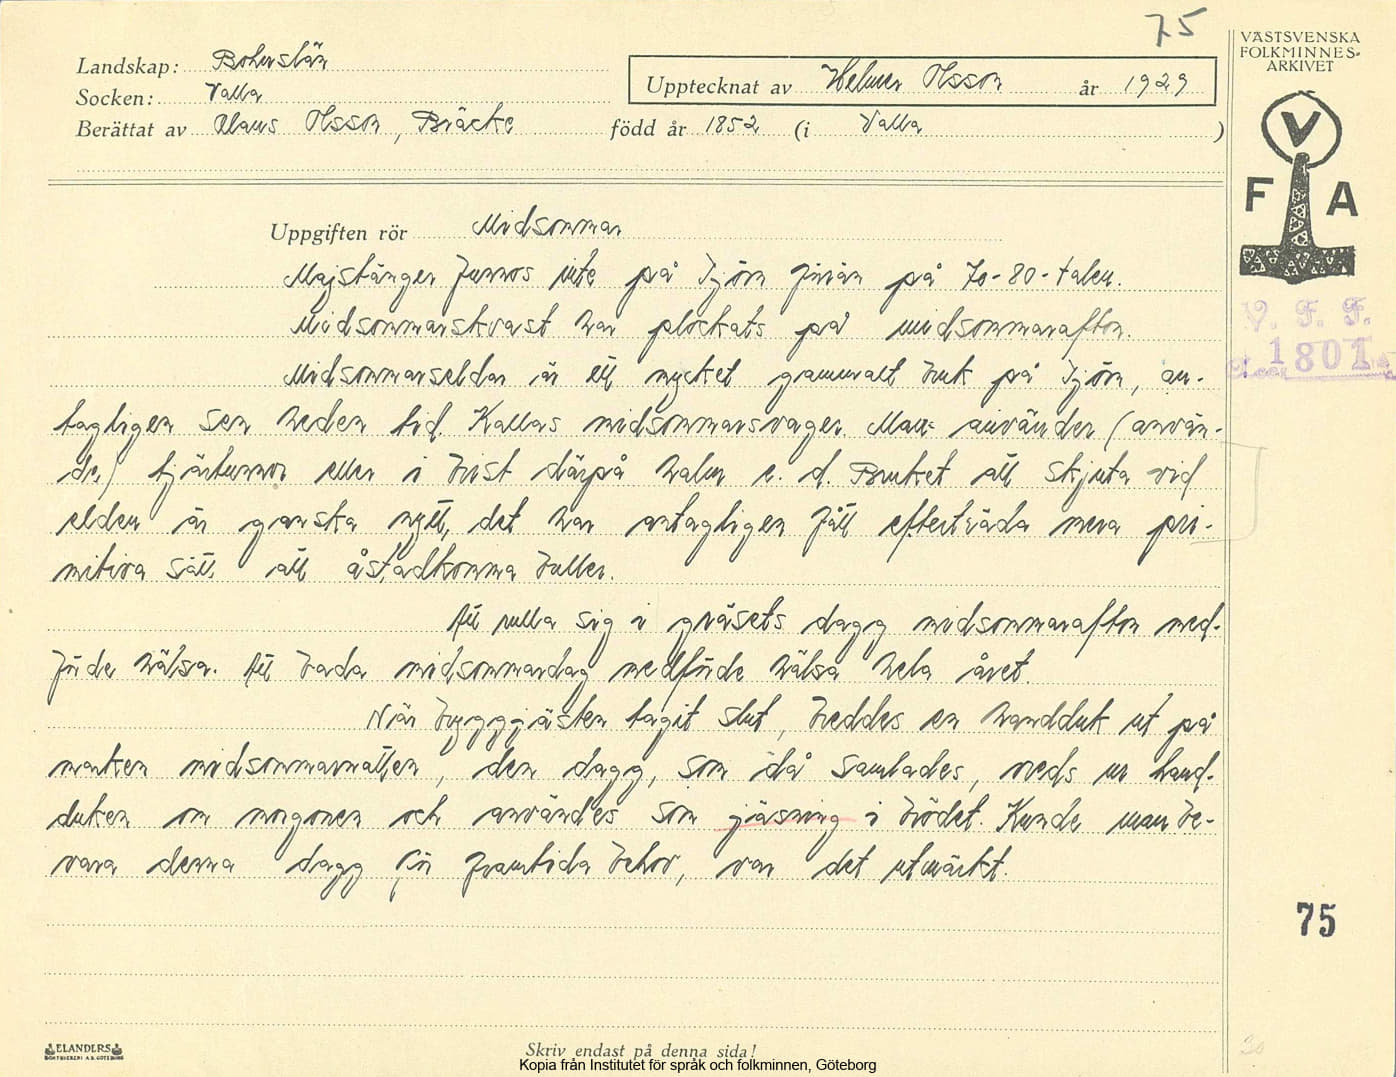 75
VÄSTSVENSKA
FOLKMINNES-
ARKIVET
Landskap: Bohuslän
Upptecknat av Helmer Olsson år 1929
Socken: Valla
Berättat av Claus Olsson, Bräcke född år 1852 (i Valla )
V
F A
Uppgiften rör Midsommar
Majstänger funnos inte på Tjörn förrän på 70-80-talen.
Midsommarskvast har plockats på midsommarafton.
V. F. F.
1801
Midsommarseldar är ett mycket gammalt bruk på Tjörn, an-
tagligen sen heden tid. Kallas midsommarsvager. Man använder (använ-
de) tjärtunnor eller i brist därpå halm e. d. Bruket att skjuta vid
elden är ganska nytt, det har antagligen fått efterträda mera pri-
mitiva sätt att åstadkomma buller.
Att rulla sig i gräsets dagg midsommarafton med-
förde hälsa. Att bada midsommardag medförde hälsa hela året.
När byggjästen tagit slut, breddes en handduk ut på
marken midsommarnatten, den dagg, som då samlades, vreds ur hand-
duken om morgonen och användes som jäsning i brödet. Kunde man be-
vara denna dagg för framtida behov, var det utmärkt.
75
ELANDERS
BOKTRYCKERI A.B. GÖTEBORG
Skriv endast på denna sida!
Kopia från Institutet för språk och folkminnen, Göteborg